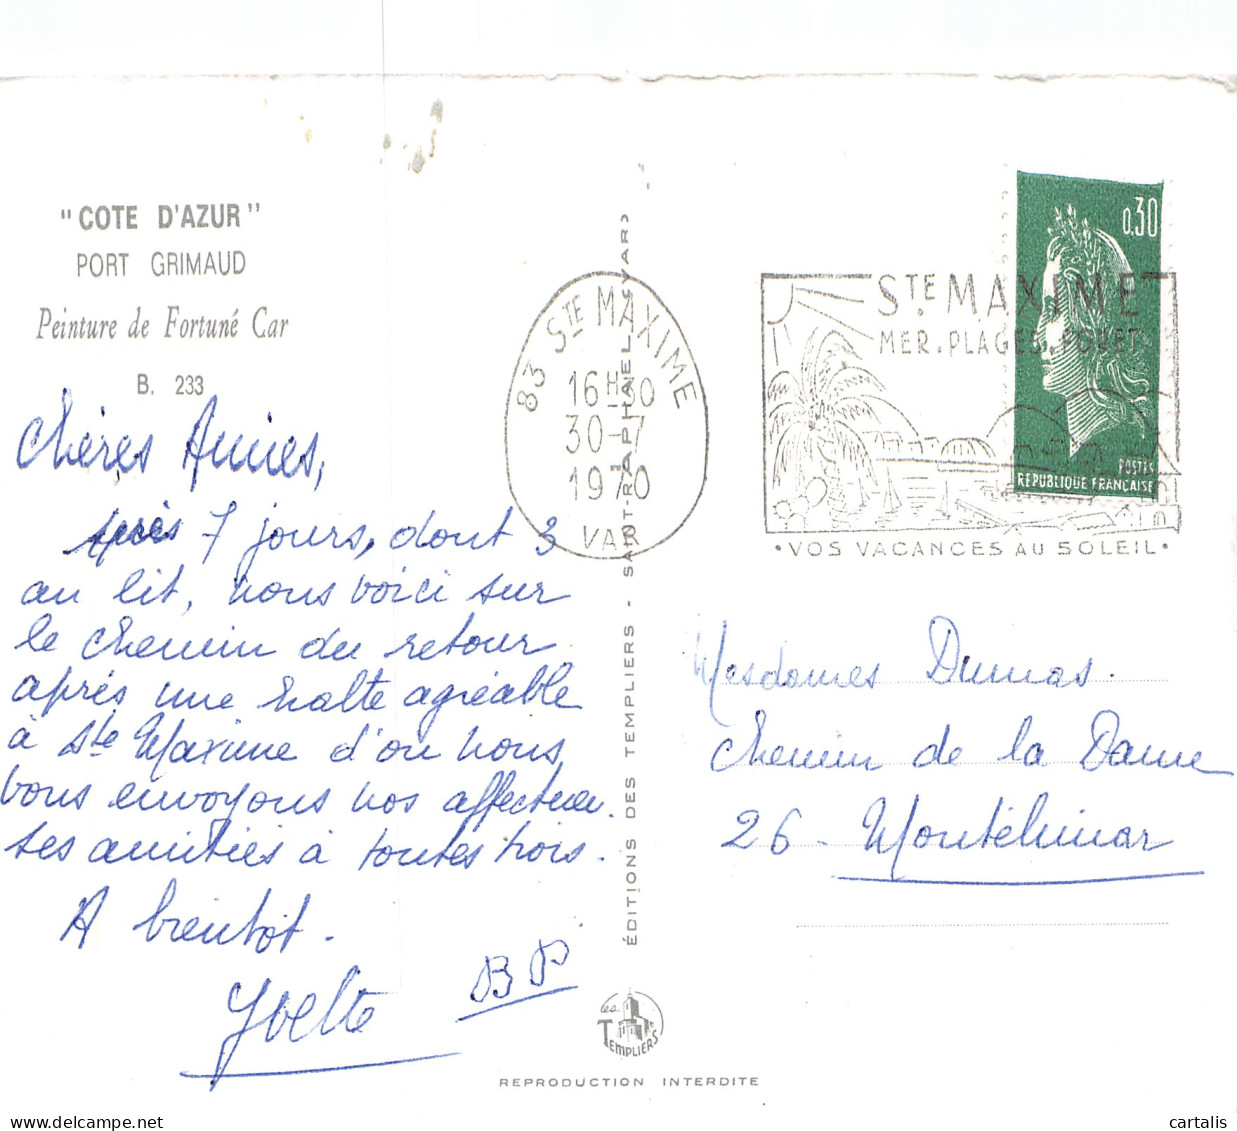 "COTE D'AZUR"
PORT GRIMAUD
Peinture de Fortuné Car
B. 233
Chères Amies,
après 7 jours, dont 3
au lit, nous voici sur
le chemin du retour
après une halte agréable
à Ste Maxime d'où nous
vous envoyons nos affectueu.
ses amitiés à toutes trois.
A bientôt.
Yvette
BP
ÉDITIONS DES TEMPLIERS - SAINT-RAPHAEL (VAR)
83 STE MAXIME
16H30
30-7
1970
VAR
STE MAXIME
MER. PLAGES. FORET
• VOS VACANCES AU SOLEIL •
0,30
POSTES
REPUBLIQUE FRANÇAISE
Mesdames Dumas.
Chemin de la Dame
26 - Montélimar
les
TEMPLIERS
REPRODUCTION INTERDITE
cartalis